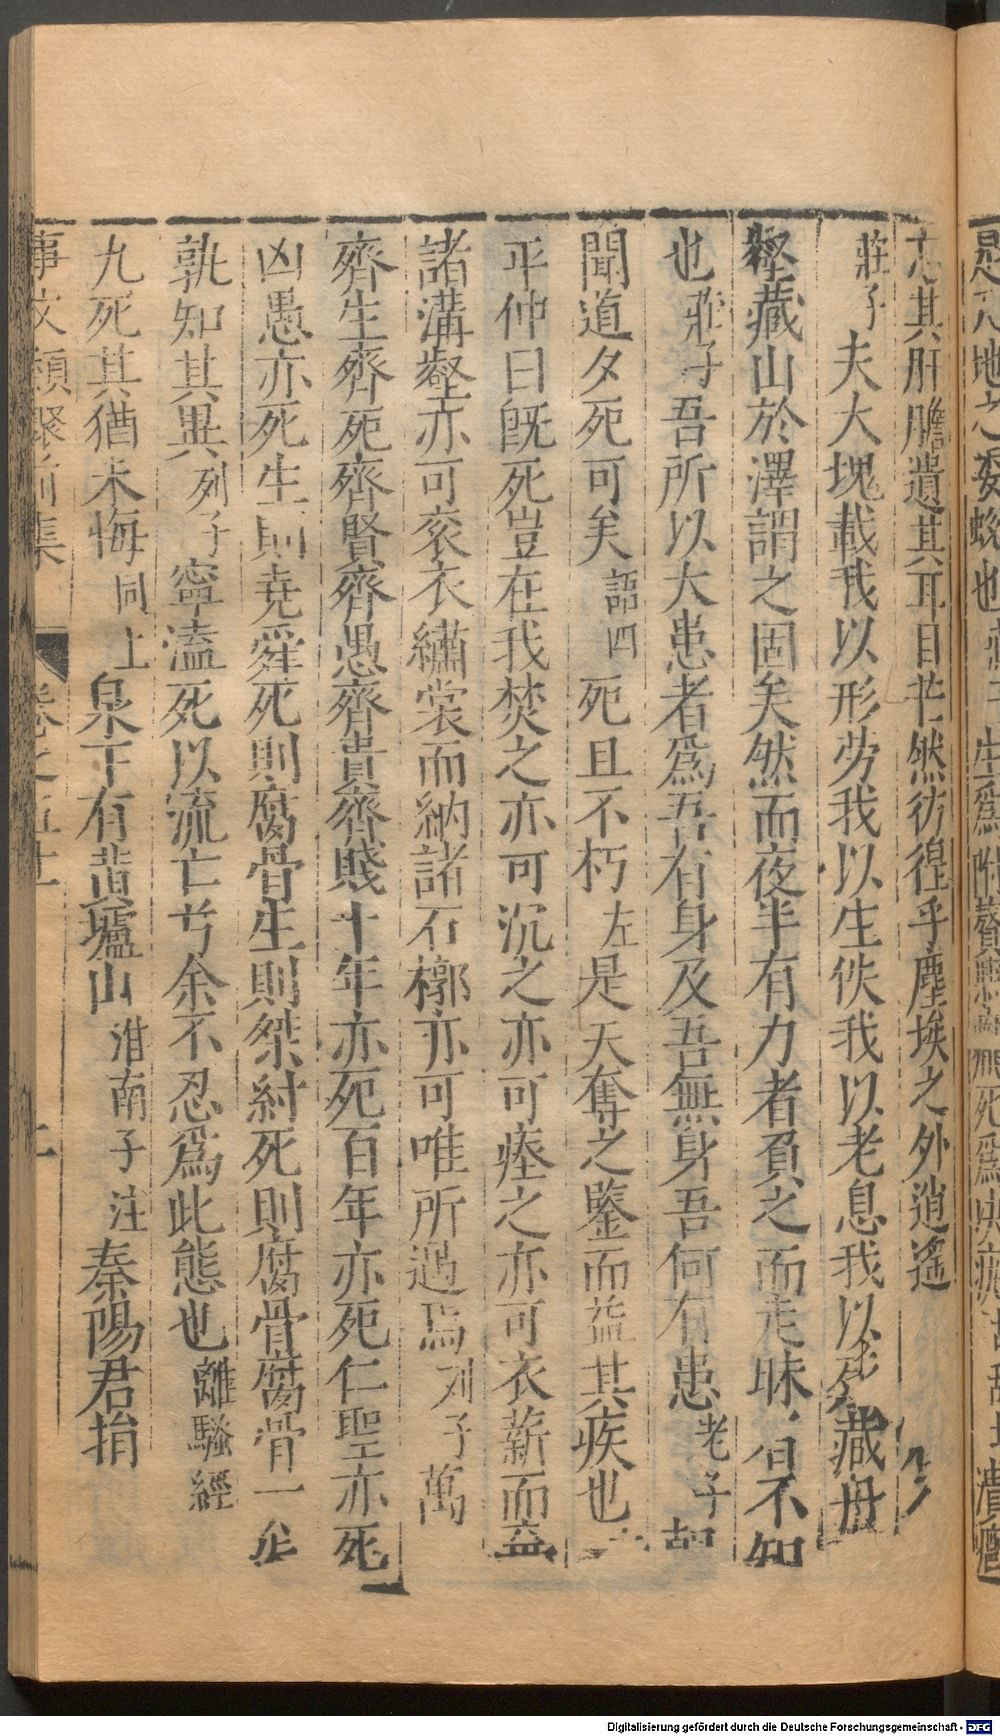 是天地之委蛻也莊子生為附贅縣疣死為決𤴯潰癰
忘其肝膽遺其耳目芒然彷徨乎塵埃之外逍遙
莊子夫大塊載我以形勞我以生佚我以老息我以死藏舟
壑藏山於澤謂之固矣然而夜半有力者負之而走昧者不知
也莊子吾所以大患者為吾有身及吾無身吾何有患老子朝
聞道夕死可矣語四死且不朽左是天奪之鑒而益其疾也
平仲曰既死豈在我焚之亦可沉之亦可瘞之亦可衣薪而棄
諸溝壑亦可衮衣繡裳而納諸石槨亦可唯所遇焉列子萬
齊生齊死齊賢齊愚齊貴齊賤十年亦死百年亦死仁聖亦死
凶愚亦死生則堯舜死則腐骨生則桀紂死則腐骨腐骨一矣
孰知其異列子寧溘死以流亡兮余不忍為此態也離騷經
九死其猶未悔同上泉下有黃壚山淮南子注秦陽君捐
事文類聚前集 卷之五十
Digitalisierung gefördert durch die Deutsche Forschungsgemeinschaft - DFG